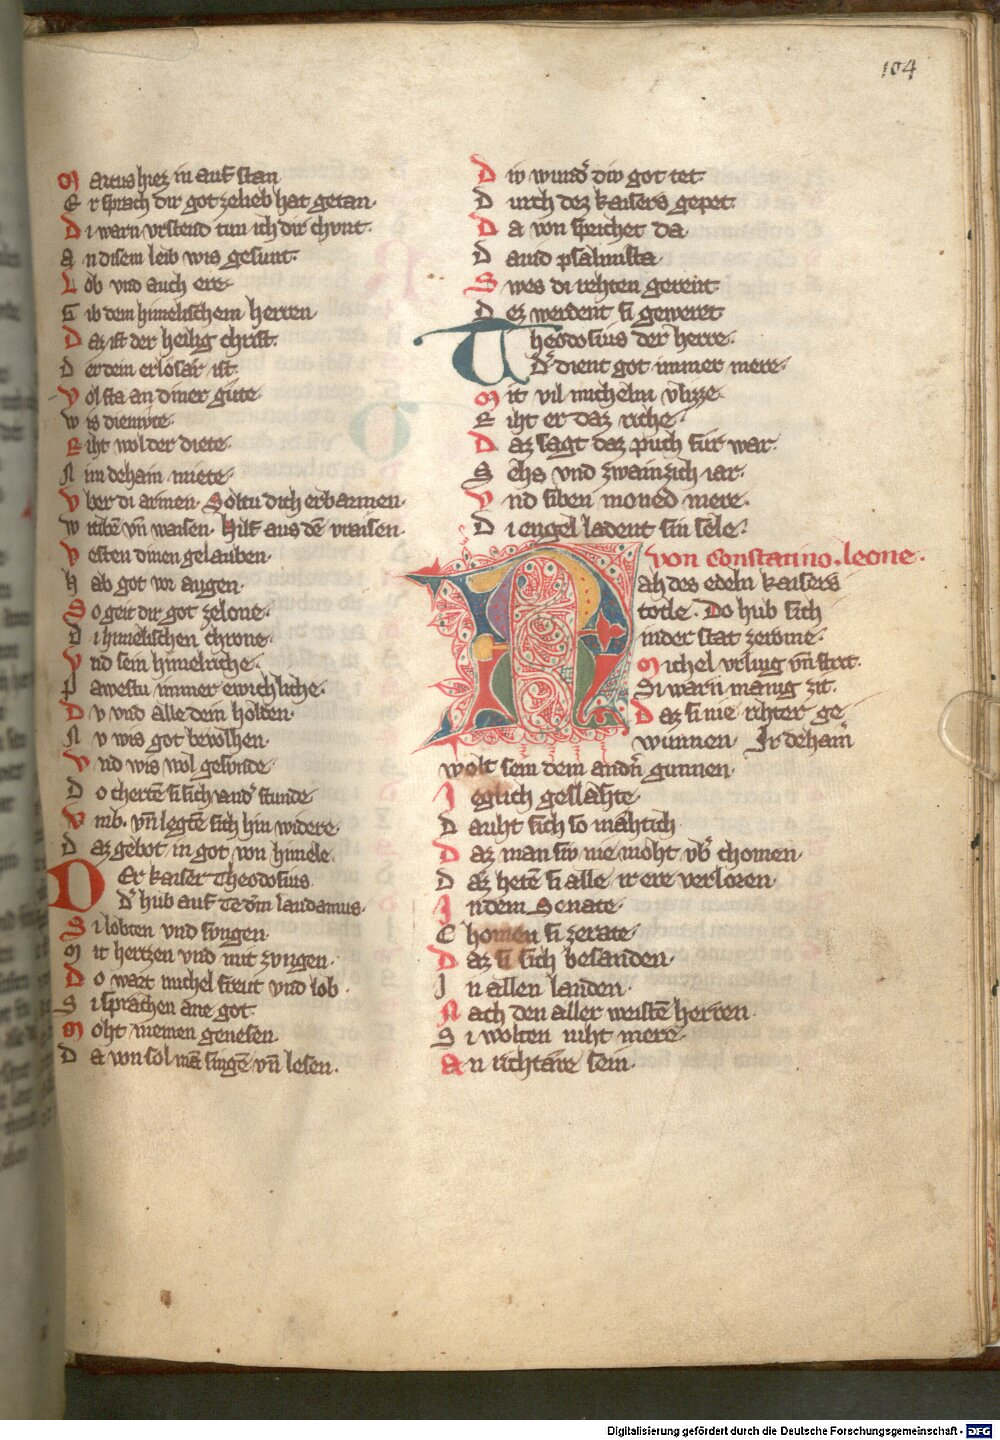 104
Martius hiez in auf stan
Er sprach dir got zelieb hat getan·
Di warn vrstend tun ich dir chunt·
An disem leib wis gesunt·
Lob vnd auch ere·
Gib dem himelischem herren
Daz ist der heilig christ·
Der dein erlosar ist·
Vol sta an diner gute
Wis diemvte·
Riht wol der diete·
Nim dehain miete·
Vber di armen· Soltu dich erbarmen·
Witiben vn̄ waisen· Hilf aus dē vraisen·
Vesten dinen gelauben·
Hab got vor augen·
So geit dir got zelone·
Di himelischen chrone·
Vnd sein himelriche·
Pawestu immer ewichliche·
Dv vnd alle dein holden·
Nv wis got bevolhen·
Vnd wis wol gesvnde·
Do chertē si sich and' stunde
Vmb· vn̄ legtē sich hin widere·
Daz gebot in got von himele·
Der kaiser Theodosius
D' hub auf Te dm̄ laudamus·
Si lobten vnd svngen·
Mit hertzen vnd mit zvngen·
Do wart michel freut vnd lob·
Si sprachen ane got·
Moht niemen genesen·
Da von sol mā singē vn̄ lesen·
Div wund' div got tet·
Durch dez kaisers gepet·
Da von sprichet da
Dauid psalmista·
Swes di rehten gerent·
Dez werdent si geweret
Theodosius der herre·
D' dient got immer mere·
Mit vil michelm vlizze·
Riht er daz riche·
Daz sagt daz puch fur war·
Sehs vnd zwainzich iar·
Vnd siben moned mere·
Di engel ladent sin sele·
von Constantino· leone·
Nah des edeln kaisers
tode· Do hub sich
inder stat zerome·
Michel vrlivg vn̄ strit·
Si warn manig zit·
Daz si nie rihter ge
wunnen· Ir dehain'
wolt sein dem andn̄ gunnen·
Jeglich geslahte·
Dauht sich so mahtich
Daz man siv nie moht vb' chomen·
Daz hetē si alle ir ere verloren·
In dem Senate·
Chomen si zerate·
Daz si sich besanden·
In allen landen·
Nach den aller weistē herren·
Si wolten niht mere·
An richtære sein·
Digitalisierung gefördert durch die Deutsche Forschungsgemeinschaft - DFG